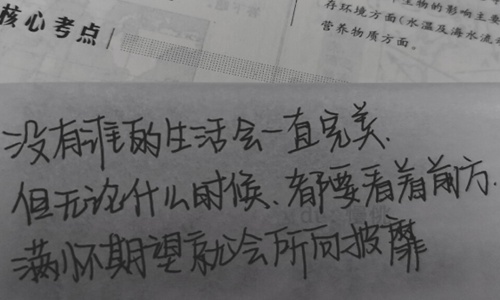 生物的影响主要
存环境方面(水温及海水流
营养物质方面。
核心考点
没有谁的生活会一直完美.
但无论什么时候、都要看着前方.
满怀期望就会所向披靡